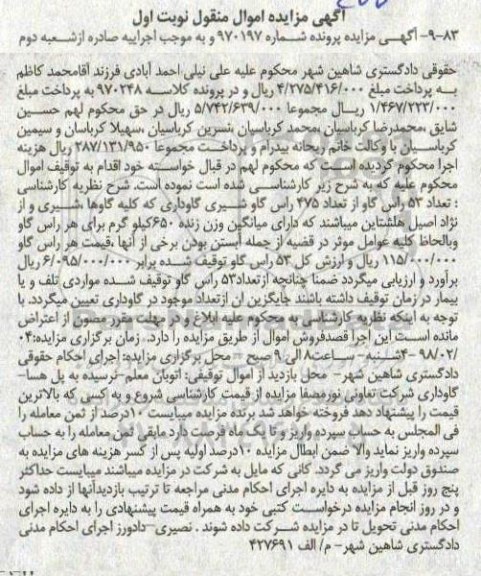 آگهی مزایده اموال منقول نوبت اول
۹-۸۳- آگهی مزایده پرونده شماره ۹۷۰۱۹۷ و به موجب اجراییه صادره ازشعبه دوم
حقوقی دادگستری شاهین شهر محکوم علیه علی نیلی احمد آبادی فرزند آقامحمد کاظم
به پرداخت مبلغ ۴/۲۷۵/۴۱۶/۰۰۰ ریال و در پرونده کلاسه ۹۷۰۲۴۸ به پرداخت مبلغ
۱/۴۶۷/۲۲۳/۰۰۰ ریال مجموعا ۵/۷۴۲/۶۳۹/۰۰۰ ریال در حق محکوم لهم حسین
شایق ،محمدرضا کرباسیان ،محمد کرباسیان ،نسرین کرباسیان ،سهیلا کرباسان و سیمین
کرباسیان با وکالت خانم ریحانه بیدرام و پرداخت مجموعا ۲۸۷/۱۳۱/۹۵۰ ریال هزینه
اجرا محکوم گردیده است که محکوم لهم در قبال خواسته خود اقدام به توقیف اموال
محکوم علیه که به شرح زیر کارشناسی شده است نموده است. شرح نظریه کارشناسی
: تعداد ۵۳ راس گاو از تعداد ۴۷۵ راس گاو شیری گاوداری که کلیه گاوها ،شیری و از
نژاد اصیل هلشتاین میباشند که دارای میانگین وزن زنده ۶۵۰کیلو گرم برای هر راس گاو
وبالحاظ کلیه عوامل موثر در قضیه از جمله آبستن بودن برخی از آنها ،قیمت هر راس گاو
۱۱۵/۰۰۰/۰۰۰ ریال و ارزش کل ۵۳ راس گاو توقیف شده برابر ۶/۰۹۵/۰۰۰/۰۰۰ ریال
برآورد و ارزیابی میگردد ضمنا چنانچه ازتعداد۵۳ راس گاو توقیف شده مواردی تلف و یا
بیمار در زمان توقیف داشته باشند جایگزین ان ازتعداد موجود در گاوداری تعیین میگردد. با
توجه به اینکه نظریه کارشناسی به محکوم علیه ابلاغ و در مهلت مقرر مصون از اعتراض
مانده است این اجرا قصدفروش اموال از طریق مزایده را دارد. زمان برگزاری مزایده:۰۴
/۹۸/۰۲ -۴شنبه- ساعت۸ الی ۹ صبح - محل برگزاری مزایده: اجرای احکام حقوقی
دادگستری شاهین شهر- محل بازدید از اموال توقیفی: اتوبان معلم-نرسیده به پل هسا-
گاوداری شرکت تعاونی نورمصفا مزایده از قیمت کارشناسی شروع و به کسی که بالاترین
قیمت را پیشنهاد دهد فروخته خواهد شد برنده مزایده میبایست ۱۰درصد از ثمن معامله را
فی المجلس به حساب سپرده واریز و تا یک ماه فرصت دارد مابقی ثمن معامله را به حساب
سپرده واریز نماید والا ضمن ابطال مزایده ۱۰درصد اولیه پس از کسر هزینه های مزایده به
صندوق دولت واریز می گردد. کانی که مایل به شرکت در مزایده میباشند میبایست حداکثر
پنج روز قبل از مزایده به دایره اجرای احکام مدنی مراجعه تا ترتیب بازدیدآنها از داده شود
و در روز انجام مزایده درخواست کتبی خود به همراه قیمت پیشنهادی را به دایره اجرای
احکام مدنی تحویل تا در مزایده شرکت داده شوند . نصیری-دادورز اجرای احکام مدنی
دادگستری شاهین شهر- م/ الف ۴۲۷۶۹۱